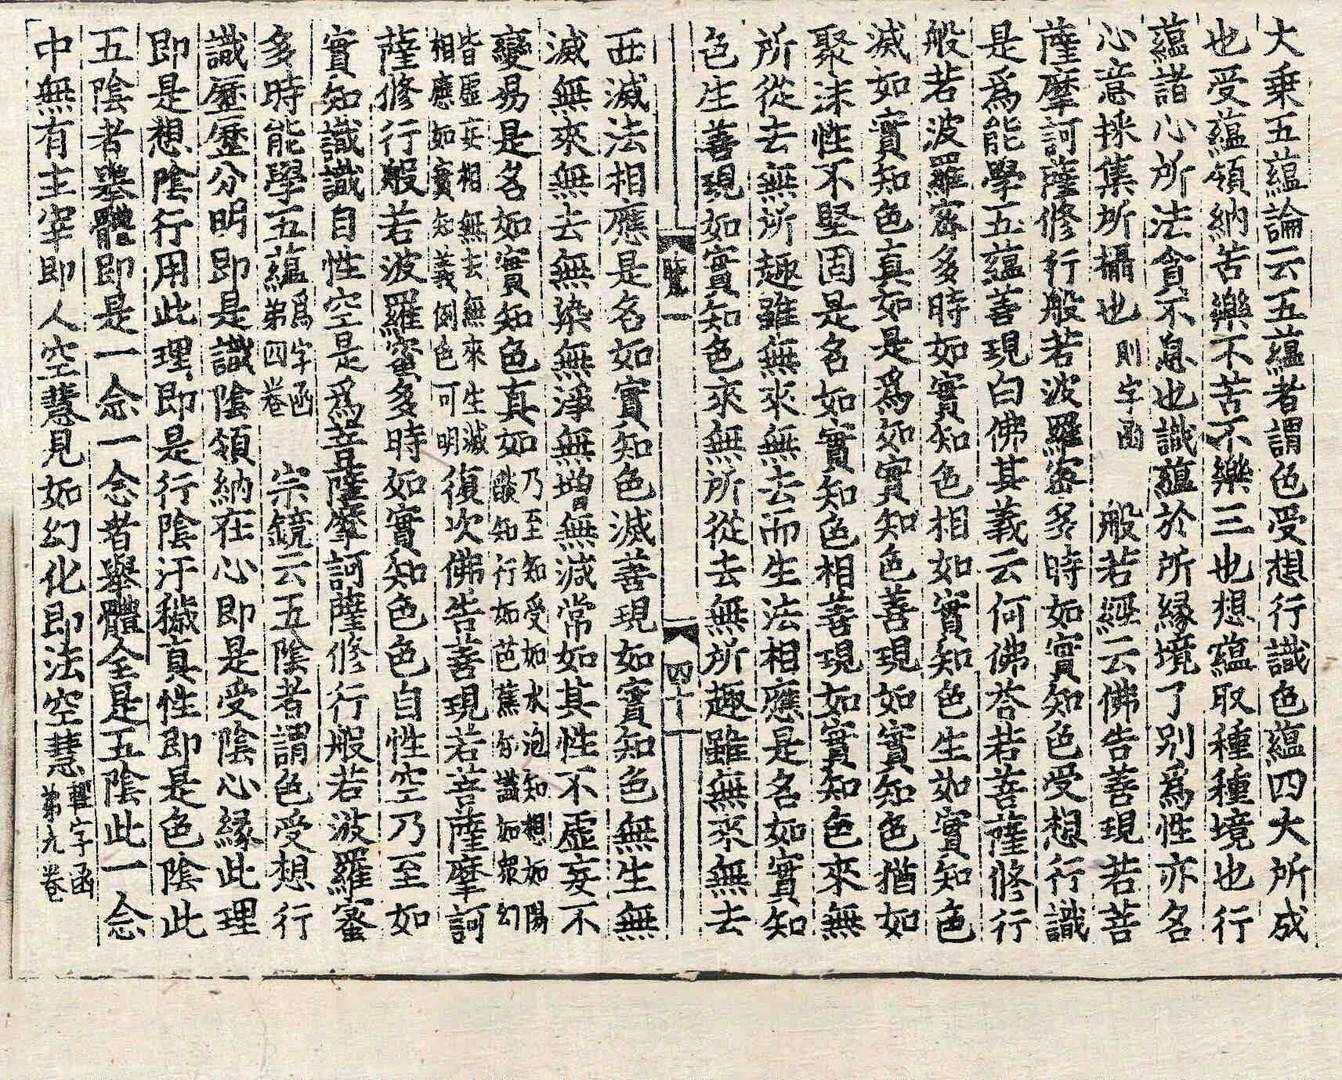 大乗五蘊論云五蘊者謂色受想行識色蘊四大所成
也受蘊領納苦樂不苦不樂三也想蘊取種種境也行
蘊諸心所法貪不息也識蘊於所緣境了別爲性亦名
心意採集所攝也則字函 般若經云佛告善現若菩
薩摩訶薩修行般若波羅密多時如實知色受想行識
是爲能學五蘊善現白佛其義云何佛荅若菩薩修行
般若波羅密多時如實知色相如實知色生如實知色
滅如實知色真如是爲如實知色善現如實知色猶如
聚沫性不堅固是名如實知色相善現如實知色來無
所從去無所趣雖無來無去而生法相應是名如實知
色生善現如實知色來無所從去無所趣雖無來無去
覽一 四十
而滅法相應是名如實知色滅善現如實知色無生無
滅無來無去無染無淨無增無減常如其性不虛妄不
變易是名如實知色真如乃至知受如水泡知想如陽
燄知行如芭蕉知識如衆幻
皆虛妄相無去無來生滅
相應如實知義例色可明復次佛告善現若菩薩摩訶
薩修行般若波羅蜜多時如實知色色自性空乃至如
實知識識自性空是爲菩薩摩訶薩修行般若波羅蜜
多時能學五蘊爲字函第四卷 宗鏡云五陰者謂色受想行
識歷歷分明即是識陰領納在心即是受陰心緣此理
即是想陰行用此理即是行陰汙穢真性即是色陰此
五陰者舉體即是一念一念者舉體全是五陰此一念
中無有主宰即人空慧見如幻化即法空慧輕字函第九卷